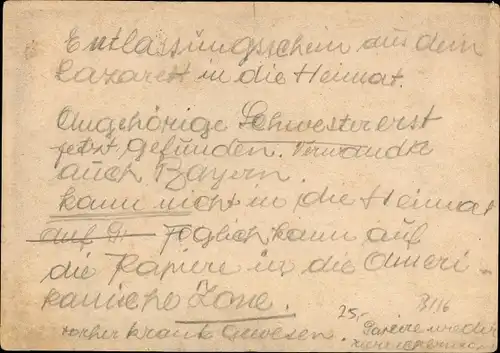 Entlassungsschein aus dem
Lazarett in die Heimat.
Angehörige Schwester erst
jetzt gefunden. Verwandte
auch Bayern.
kann nicht in die Heimat
auf kann auf
die Papiere in die Ameri-
kanische Zone.
vorher krank gewesen. 25,-